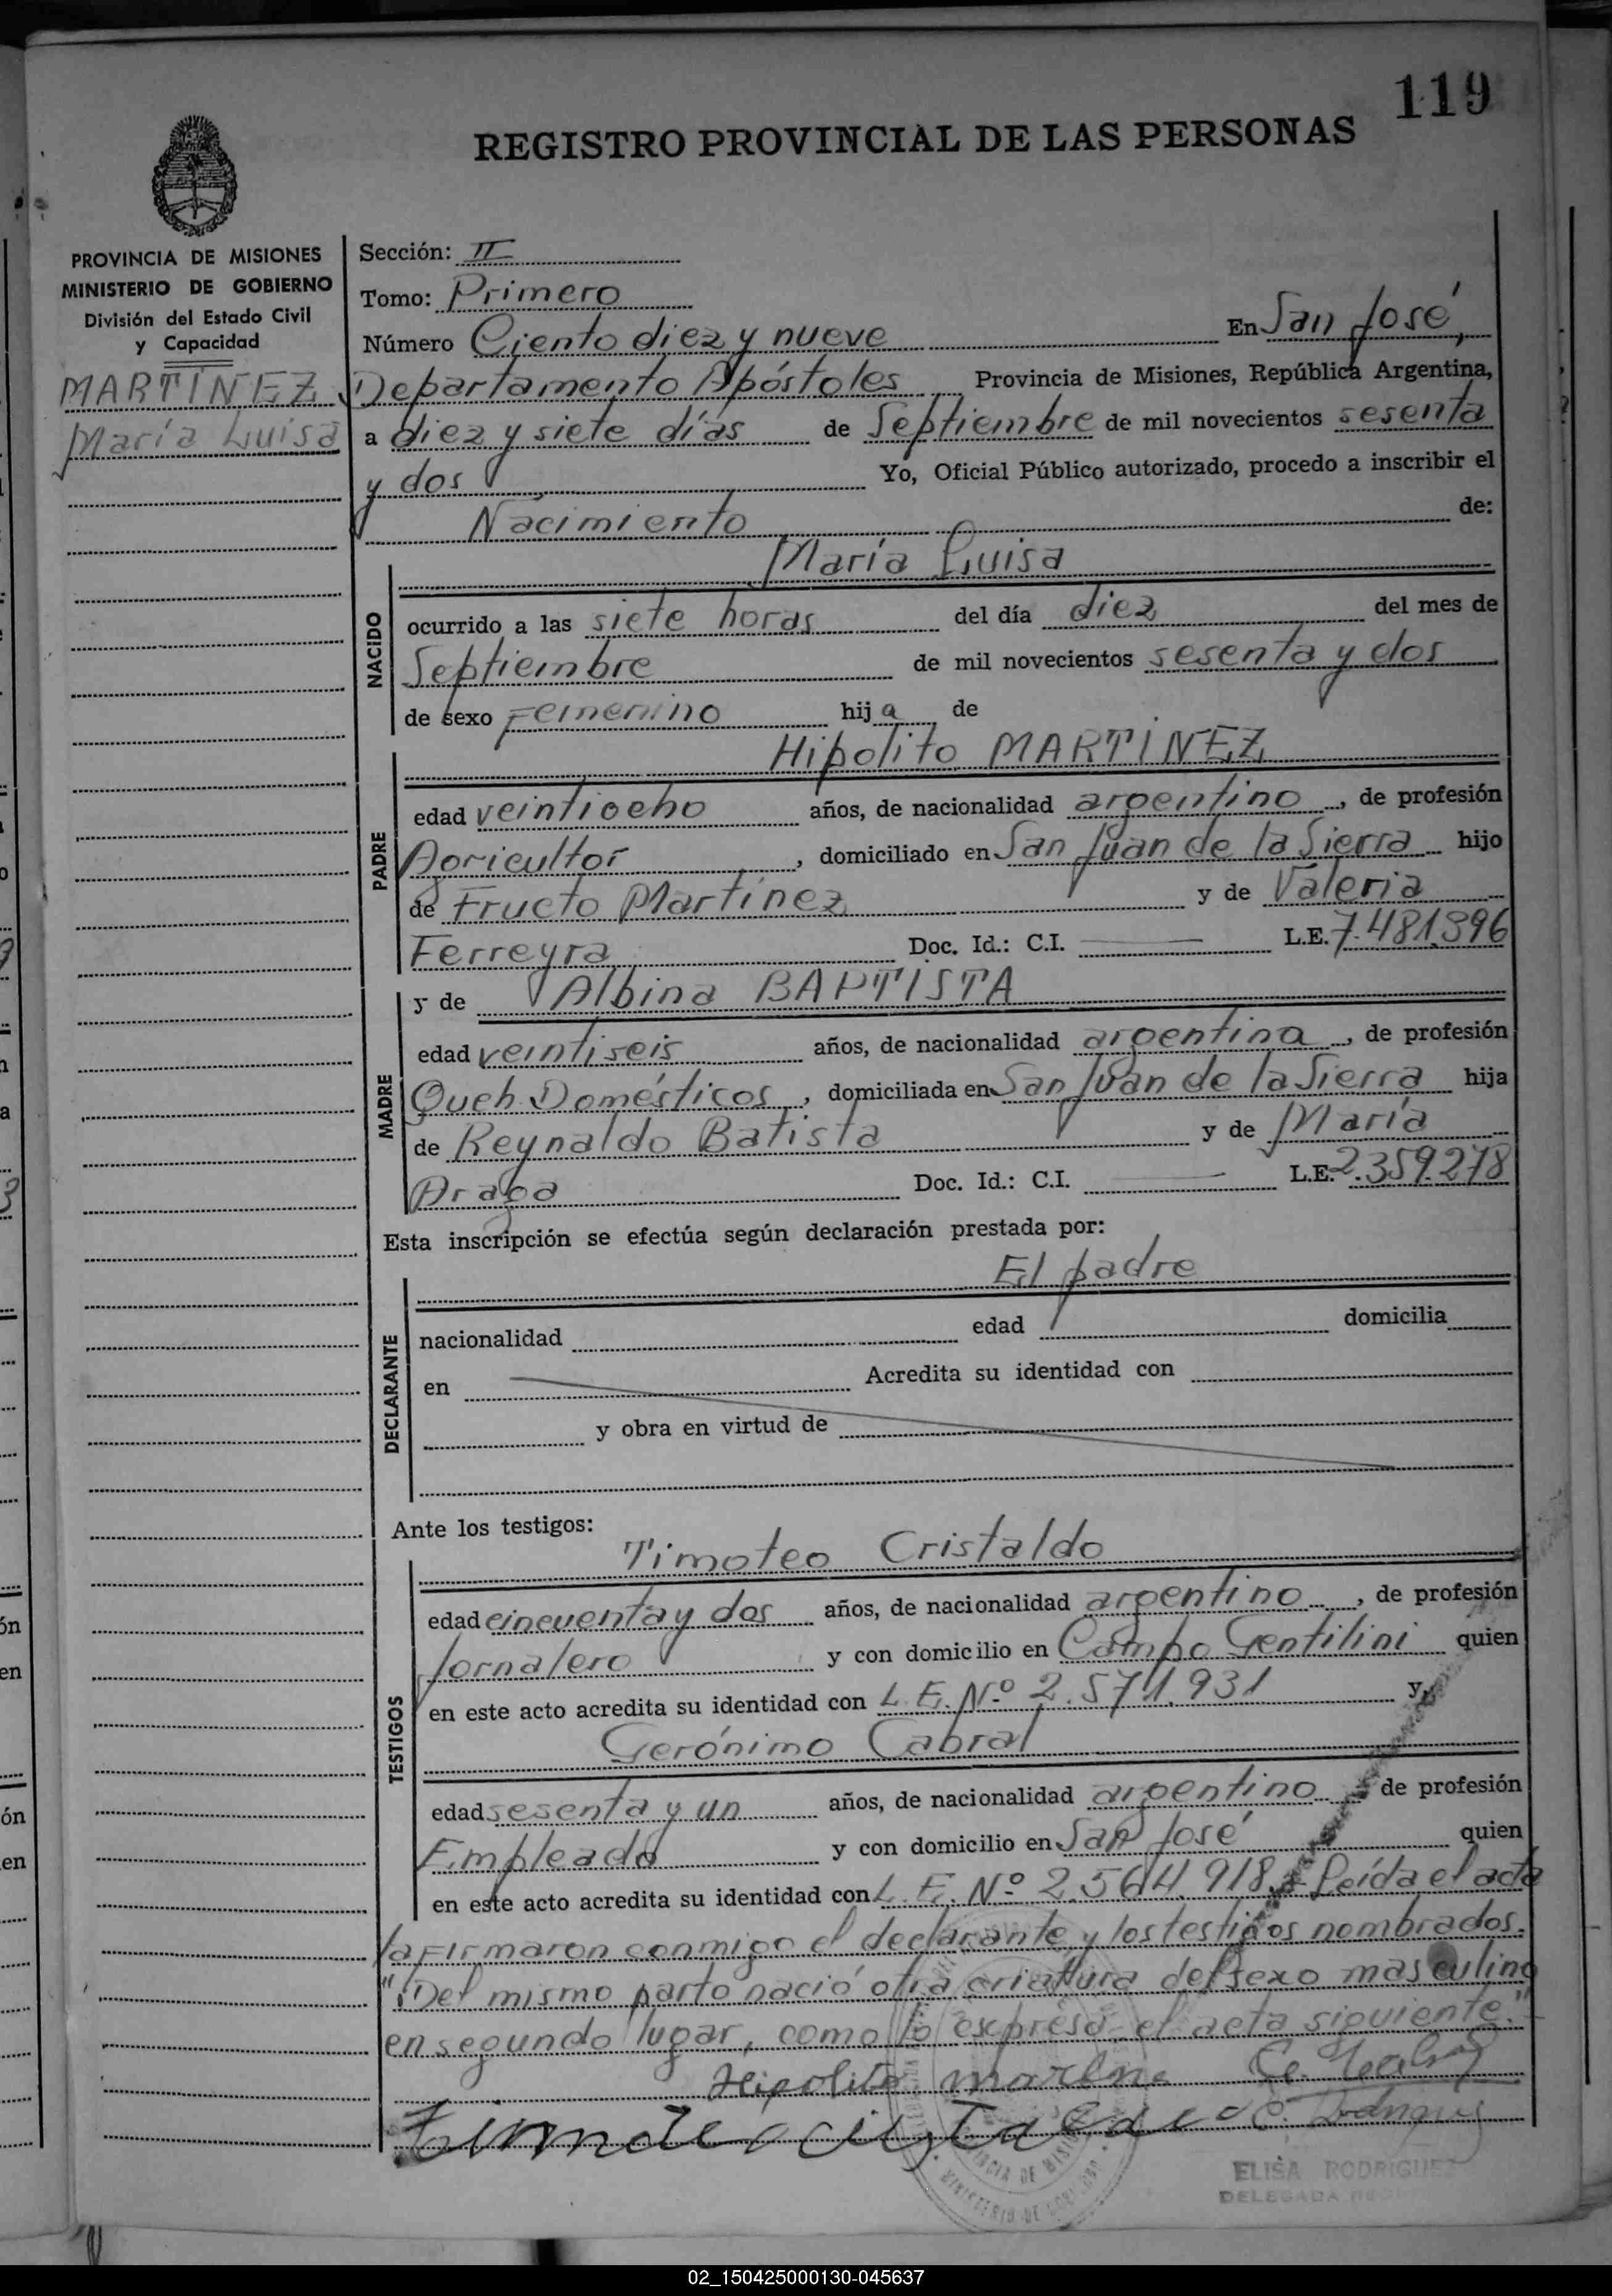 119
REGISTRO PROVINCIAL DE LAS PERSONAS
PROVINCIA DE MISIONES
MINISTERIO DE GOBIERNO
División del Estado Civil
y Capacidad
MARTINEZ
María Luisa
Sección: II
Tomo: Primero
Número Ciento diez y nueve En San José,
Departamento Apóstoles Provincia de Misiones, República Argentina,
a diez y siete días de Septiembre de mil novecientos sesenta
y dos Yo, Oficial Público autorizado, procedo a inscribir el
Nacimiento de:
María Luisa
NACIDO
ocurrido a las siete horas del día diez del mes de
Septiembre de mil novecientos sesenta y dos
de sexo Femenino hija de
Hipólito MARTINEZ
PADRE
edad veintiocho años, de nacionalidad argentino, de profesión
Agricultor, domiciliado en San Juan de la Sierra hijo
de Fructo Martínez y de Valeria
Ferreyra Doc. Id.: C.I. L.E. 7.481.396
y de Albina BAPTISTA
MADRE
edad veintiseis años, de nacionalidad argentina, de profesión
Queh. Domésticos, domiciliada en San Juan de la Sierra hija
de Reynaldo Batista y de María
Draga Doc. Id.: C.I. L.E. 2.359.278
Esta inscripción se efectúa según declaración prestada por:
El padre
DECLARANTE
nacionalidad edad domicilia
en Acredita su identidad con
y obra en virtud de
Ante los testigos:
Timoteo Cristaldo
TESTIGOS
edad cincuenta y dos años, de nacionalidad argentino, de profesión
Jornalero y con domicilio en Campo Gentilini quien
en este acto acredita su identidad con L.E. Nº 2.571.931 y
Gerónimo Cabral
edad sesenta y un años, de nacionalidad argentino de profesión
Empleado y con domicilio en San José quien
en este acto acredita su identidad con L.E. Nº 2.564.918. Leída el acta
la firmaron conmigo el declarante y los testigos nombrados.
"Del mismo parto nació otra criatura del sexo masculino
en segundo lugar, como lo expresa el acta siguiente."
Hipolito
ELISA RODRIGUE
DELEGADA
MINISTERIO DE GOBIERNO
02_150425000130-045637